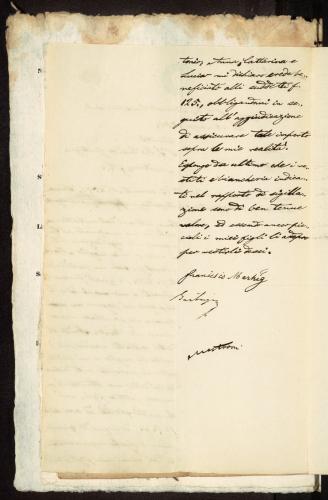 tonio, Anna, Catterina e
Lucia mi dichiaro erede be-
neficiato alli suddetti f.
125, obbligandomi in se-
guito all'aggiudicazione
di assicurare tale importo
sopra le mie realità.
Espongo da ultimo che i ve-
stiti e biancheria indica-
ti nel rapporto di sigilla-
zione sono di ben tenue
valore, ed essendo ancor pic-
coli i miei figli li adopro
per vestirli dessi.
Francesco Marhig